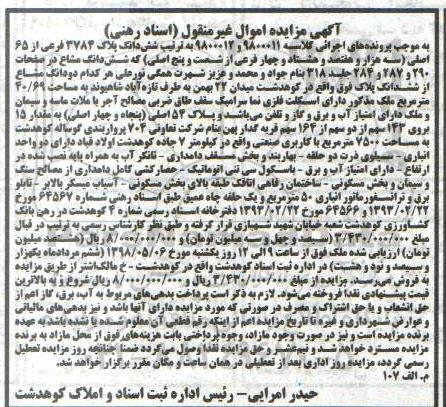 آگهی مزایده اموال غیرمنقول (اسناد رهنی)
به موجب پرونده‌های اجرائی کلاسه ۹۸۰۰۰۱۱ و ۹۸۰۰۰۱۲ به ترتیب شش‌دانگ پلاک ۳۷۸۴ فرعی از ۶۵
اصلی (سه هزار و هفتصد و هشتاد و چهار فرعی از شصت و پنج اصلی) که شش‌دانگ مشاع در صفحات
۲۹۰ و ۲۸۷ و ۲۸۴ جلید ۳۱۸ بنام جواد و محمد و عزیز شهرت همگی نورعلی هر کدام دودانگ مشاع
از ششدانگ پلاک فوق واقع در کوهدشت میدان ۲۲ بهمن به طرف تازه‌آباد شاهیوند به مساحت ۴۰/۶۹
مترمربع ملک مذکور دارای اسکلت فلزی نما سرامیک سقف طاق ضربی مصالح آجر با ملات ماسه و سیمان
و ملک دارای امتیاز آب و برق و گاز و تلفن می‌باشد. و پلاک ۵۴ اصلی (پنجاه و چهار اصلی) به مقدار ۱۵
سهم از دو سهم از ۱۶۲ سهم قریه کدار پهن بنام شرکت تعاونی ۷۰۳ پرواربندی گوساله کوهدشت
به مساحت ۷۵۰۰ مترمربع با کاربری صنعتی واقع در کیلومتر ۷ جاده کوهدشت اولاد قباد دارای دو واحد
انباری – سیلوی ذرت دو حلقه – بهاربند و بخش مسقف دامداری – تانکر آب به همراه پایه نصب شده در
ارتفاع – دارای امتیاز آب و برق – باسکول سی تنی اتوماتیک – حصارکشی کامل دامداری از مصالح سنگ
و سیمان و بخش مسکونی – ساختمان رفاهی اتاقک طبقه بالای بخش مسکونی – آسیاب میسکر بالابر – تابلو
و برق و ترانسفورماتور انباری ۵۰ مترمربع و یک حلقه چاه عمیق طبق اسناد رهنی شماره ۶۴۵۶۷ مورخ
۱۳۹۳/۰۲/۲۲ و ۶۴۵۶۶ مورخ ۱۳۹۳/۰۲/۲۲ دفترخانه اسناد رسمی شماره ۴ کوهدشت در رهن بانک
کشاورزی کوهدشت شعبه خیابان شهید شهبازی قرار گرفته و طبق نظر کارشناس رسمی به ترتیب در قبال
۳/۴۳۰/۰۰۰/۰۰۰ (سیصد و چهل و سه میلیون تومان) و ۸/۰۰۰/۰۰۰/۰۰۰ ریال (هشتصد میلیون
تومان) ارزیابی شده ملک فوق از ساعت ۹ الی ۱۲ روز یکشنبه مورخ ۱۳۹۸/۰۵/۰۶ (ششم مردادماه یکهزار
و سیصد و نود و هشت) در اداره ثبت اسناد کوهدشت واقع در کوهدشت – خ مالک‌اشتر از طریق مزایده
به فروش می‌رسد. مزایده از مبلغ ۳/۴۳۰/۰۰۰/۰۰۰ ریال و ۸/۰۰۰/۰۰۰/۰۰۰ ریال شروع و به بالاترین
قیمت پیشنهادی نقدا فروخته می‌شود. لازم به ذکر است پرداخت بدهی‌های مربوط به آب، برق، گاز اعم از
حق انشعاب و یا حق اشتراک و مصرف در صورتی که مورد مزایده دارای آنها باشد و نیز بدهی‌های مالیاتی
و عوارض شهرداری و غیره تا تاریخ مزایده اعم از اینکه رقم قطعی آن معلوم شده یا نشده باشد به عهده
برنده مزایده است و نیز در صورت وجود مازاد، وجوه پرداختی بابت هزینه‌های فوق از محل مازاد به برنده
مزایده مسترد خواهد شد و نیم‌عشر و حق مزایده نقدا وصول می‌گردد ضمنا چنانچه روز مزایده تعطیل
رسمی گردد، مزایده روز اداری بعد از تعطیلی در همان ساعت و مکان مقرر برگزار خواهد شد.
م. الف ۱۰۷
حیدر امرایی – رئیس اداره ثبت اسناد و املاک کوهدشت